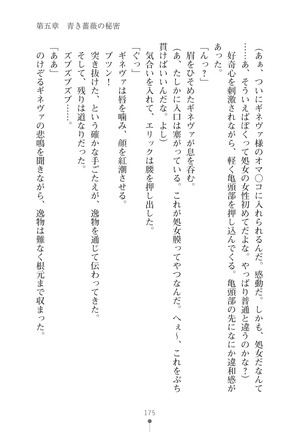 第五章　青き薔薇の秘密
(あぁ、ついにギネヴァ様のオマ〇コに入れられるんだ。感動だ。しかも、処女だなんて
さ。そういえばぼくって処女の女性初めてだよな。やっぱり普通と違うのかな？)
好奇心を刺激されながら、軽く亀頭部を押し込んでくる。亀頭部の先になにか違和感が
あった。
「んっ？」
眉をひそめたギネヴァが息を呑む。
(あ、たしかに入口は塞がっている。これが処女膜ってやつなんだ。へぇ〜、これをぶち
貫けばいいんだな。よし)
気合いを入れて、エリックは腰を押し出した。
ギネヴァは唇を噛み、顔を紅潮させる。
ブツン！
突き抜けた、という確かな手ごたえが、逸物を通じて伝わってきた。
そして、残りは道なりだった。
ズブズブズブ……。
「ああ」
のけぞるギネヴァの悲鳴を聞きながら、逸物は難なく根元まで収まった。
175